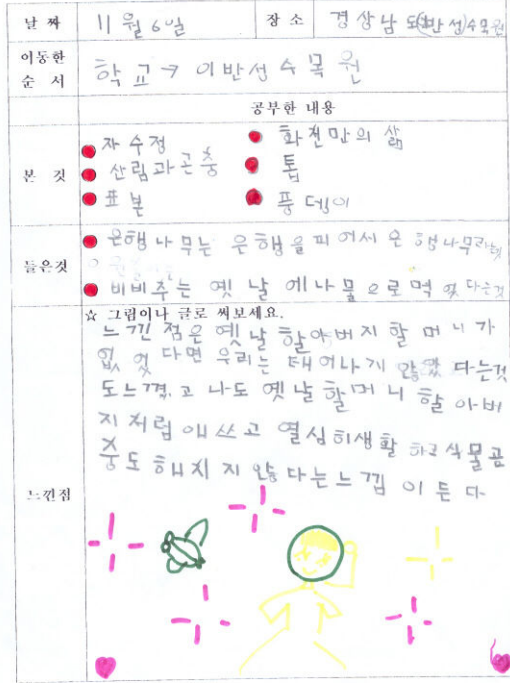 날짜 11월 6일 장소 경상남도(이반성)수목원
이동한 순서 학교→이반성수목원
공부한 내용
본 것
자수정 화전만의 삶
산림과곤충 톱
표본 풍뎅이
들은것
은행나무는 은행을피어서은행나무라는것
비비추는 옛날에나물으로먹었다는것
☆ 그림이나 글로 써보세요.
느낀점
느낀점은옛날할아버지할머니가
없었다면우리는태어나기않았다는것
도느꼈고나도옛날할머니할아버
지처럼애쓰고열심히생활하고식물곰
충도해치지않다는느낌이든다